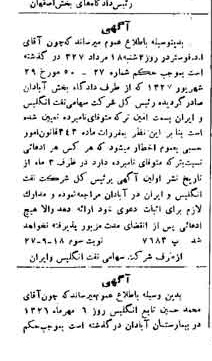 رئیس دادگاه‌های بخش اصفهان
آگهی
بدینوسیله باطلاع عموم میرساند که چون آقای
ا.د.فوستر در روز ۲ شنبه ۱۸ مرداد ۳۲۷ در گذشته
است بموجب حکم شماره ۲۷ - ۵۰ مورخ ۲۹
شهریور ۱۳۲۷ که از طرف دادگاه بخش آبادان
صادر گردیده رئیس کل شرکت سهامی نفت انگلیس
و ایران بسمت امین ترکه متوفای نامبرده تعیین شده
است بنا بر این نظر بمقررات ماده ۲۴۳ قانون امور
حسبی بعموم اخطار میشود که هر کس هر ادعائی
نسبت بترکه متوفای نامبرده دارد در ظرف ۳ ماه از
تاریخ نشر اولین آگهی برئیس کل شرکت نفت
انگلیس و ایران در آبادان مراجعه نموده و مدارك
لازم برای اثبات دعوی خود ارائه دهد والا هیچ
ادعائی پس از انقضای مدت مزبور پذیرفته نخواهد
شد پ ۷۶۸۳ نوبت سوم ۱۸-۹-۲۷
از طرف شرکت سهامی نفت انگلیس و ایران
آگهی
بدین وسیله باطلاع عموم میرساند که چون آقای
محمد حسین تابع انگلیس روز ۶ مهرماه ۱۳۲۶
در بیمارستان آبادان درگذشته است بموجب حکم